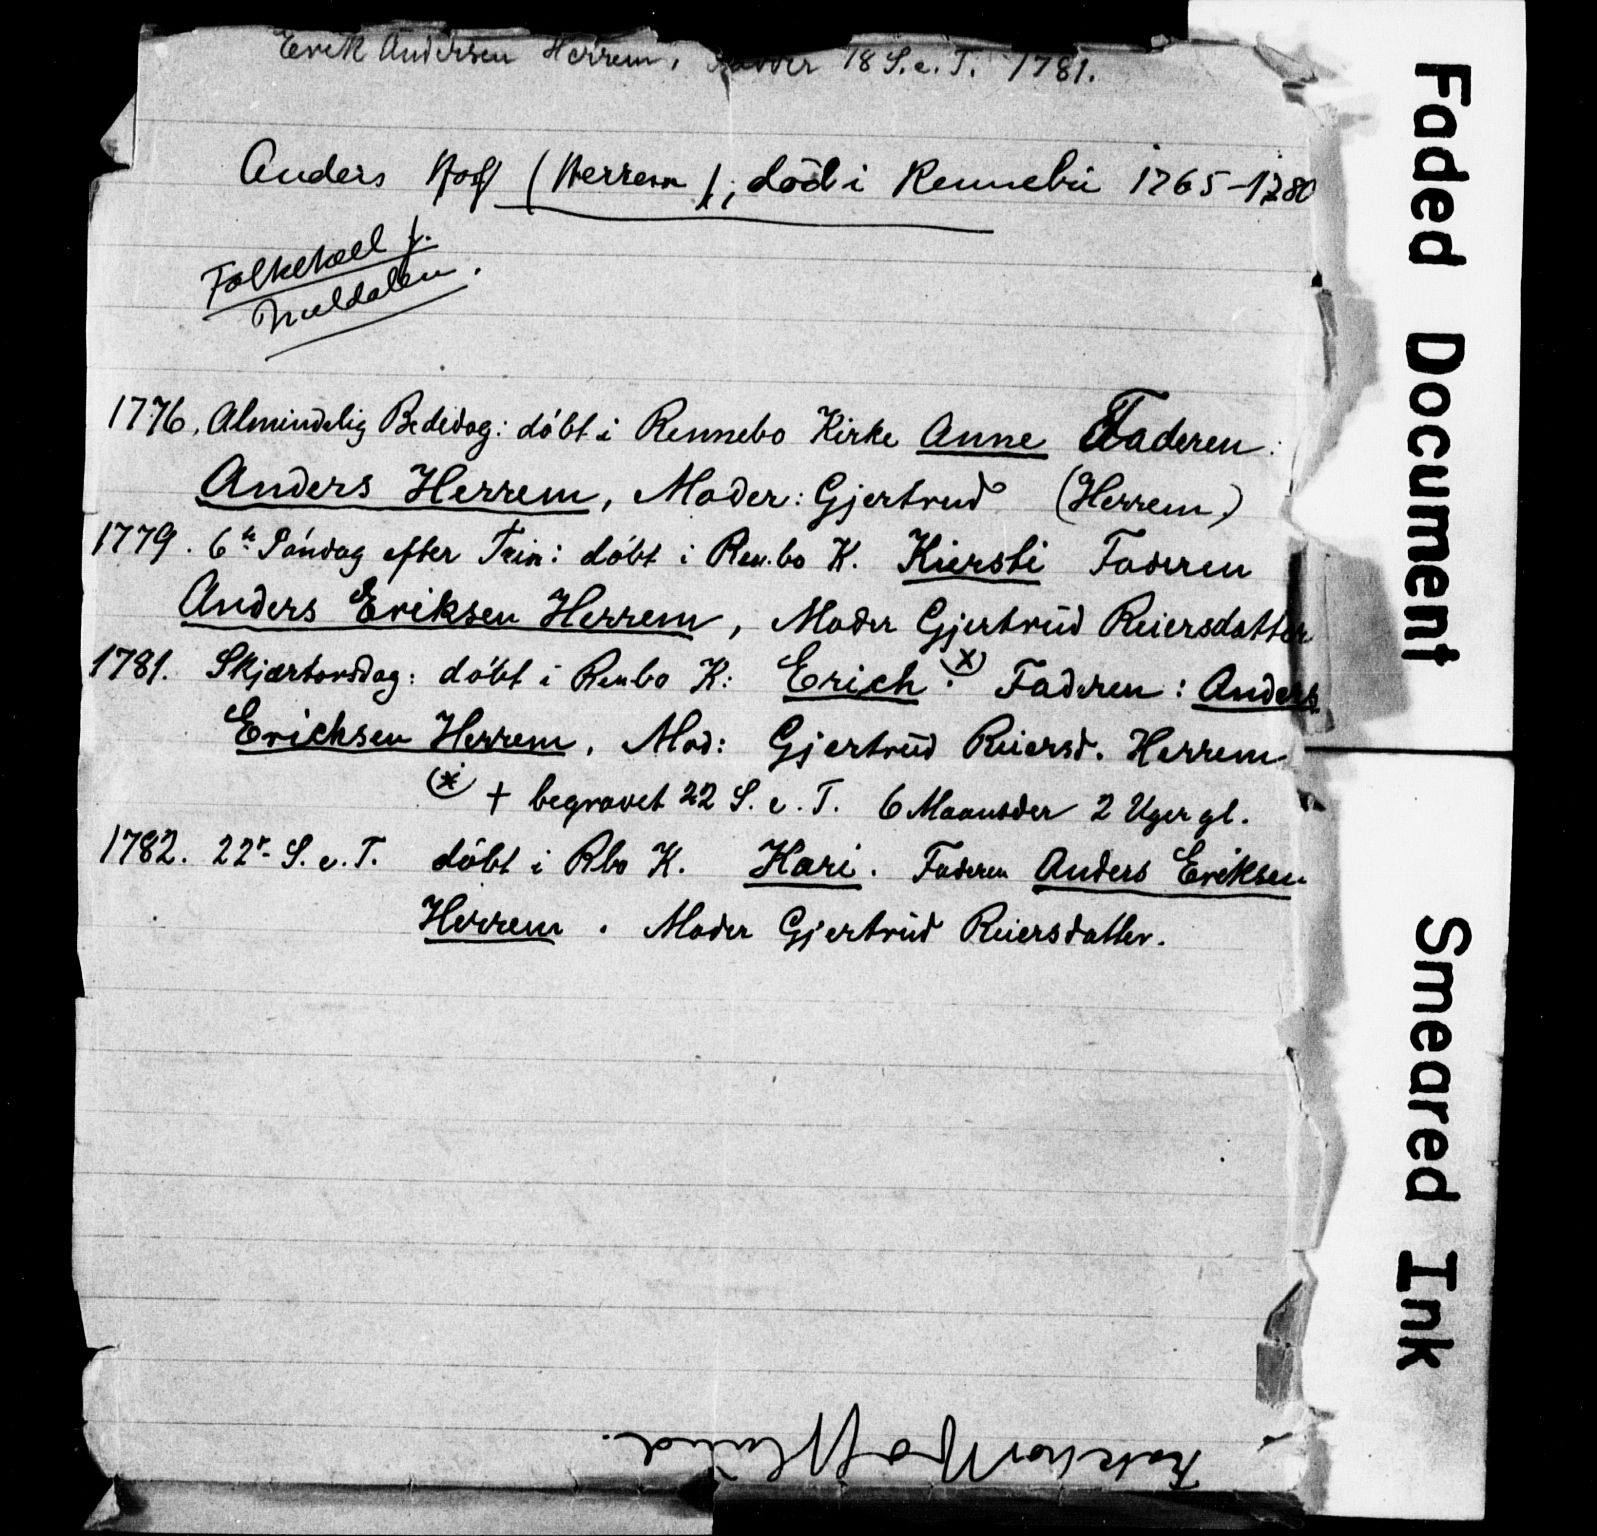 Erik Andersen Herrem, Fadder 18 S. e. T. 1781.
Anders Hoff (Herrem), död i Rennebu 1765-1780
Folketæll f.
Meldalen.
1776. Almindelig Bededag: döbt i Rennebo Kirke Anne Faderen:
Anders Herrem, Moder: Gjertrud (Herrem)
1779. 6te Söndag efter Trin: döbt i Ren.bo K. Kiersti Faderen
Anders Eriksen Herrem, Moder Gjertrud Reiersdatter
1781. Skjærtorsdag: döbt i Renbo K: Erich. (x) Faderen: Anders
Erichsen Herrem. Mod: Gjertrud Reiersd. Herrem
(x) + begravet 22 S. e. T. 6 Maaneder 2 Uger gl.
1782. 22r. S. e. T. döbt i Rbo K. Kari. Faderen Anders Eriksen
Herrem. Moder Gjertrud Reiersdatter.
Faded Document
Smeared Ink